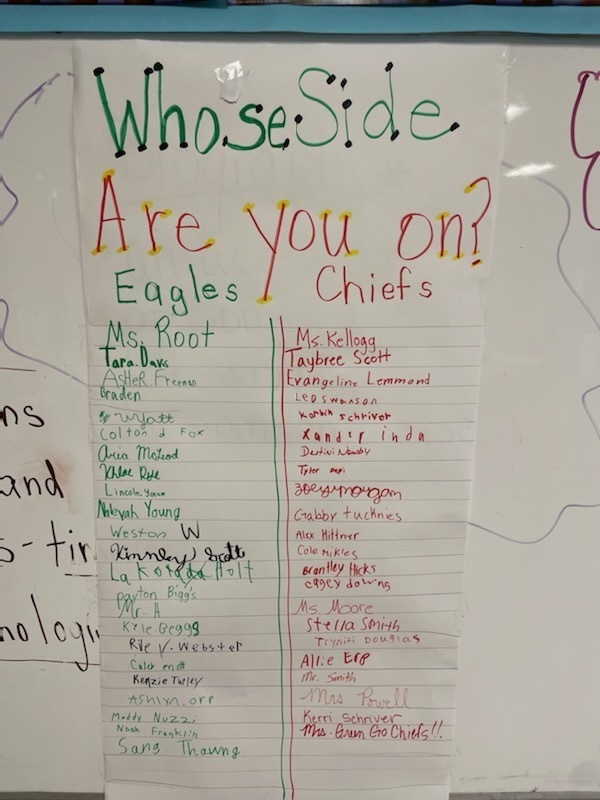 Whose Side
Are you on?
Eagles
Ms. Root
Tara. Davis
AsHeR. Freeman
Braden
Wyatt
Colton d Fox
Aria McLeod
Khloe Rye
Lincoln. Yocum
Nateyah Young
Weston W
Kinnley Scott
La Kota Holt
Payton Bigg's
Mr. H
Kyle. Beggs
Rile y. Webster
Caleb mott
Kenzie Turley
ASHlyn. orr
Maddy Nuzzi
Noah Franklin
Sang Thawng
Chiefs
Ms. Kellogg
Taybree Scott
Evangeline Lemmond
Leo swanson
Korbin schriver
xander inda
Destini Newby
Tyler
zoey morgan
Gabby tucknies
Alex Hittner
Cole mikles
Brantley Hicks
cagey downg
Ms. Moore
Stella Smith
Tryniti Douglas
Allie Erp
Mr. Smith
Mrs Powell
Kerri Schriver
Mrs. Green Go Chiefs!!
ns
and
s-tin
nologi